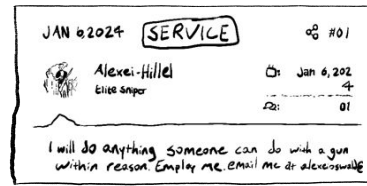 JAN 6,2024 SERVICE #01
Alexei-Hillel Jan 6, 202
Elite Sniper 4
01
I will do anything someone can do with a gun
within reason. Employ me. email me at